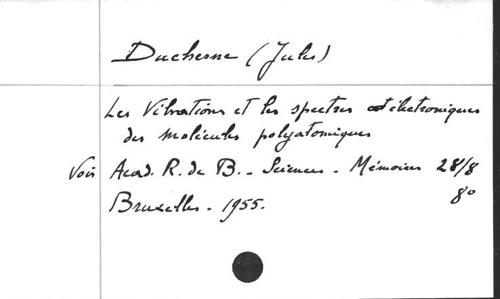 Duchesne (Jules)
Les Vibrations et les spectres électroniques
des molécules polyatomiques
Voir Acad. R. de B. - Sciences - Mémoires 28/8
8°
Bruxelles - 1955.